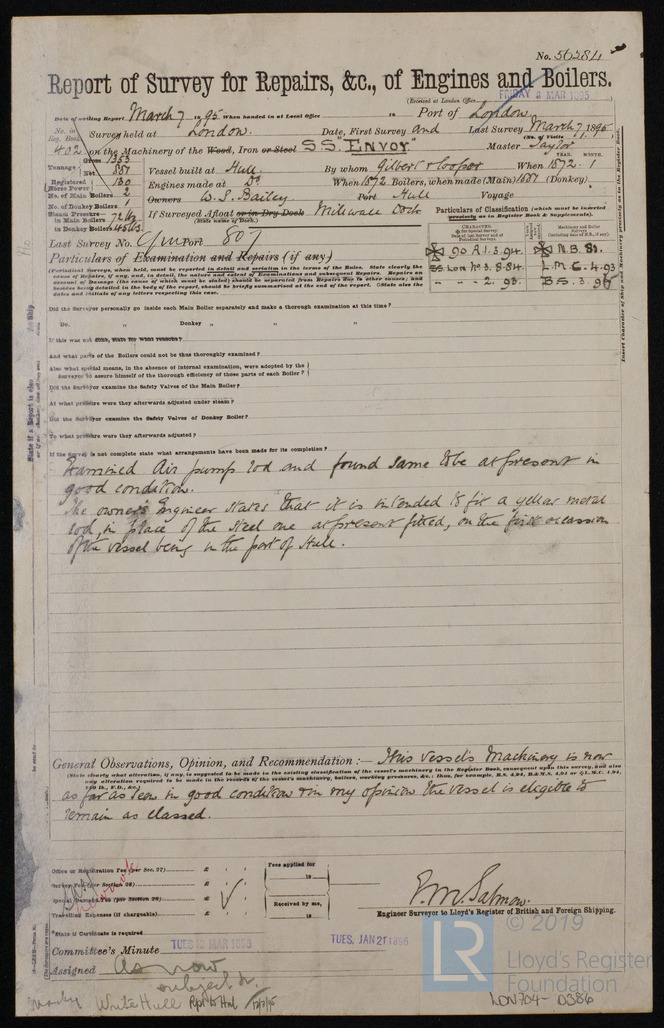 No. 56384
Report of Survey for Repairs, &c., of Engines and Boilers.
(Received at London Office
FRIDAY 8 MAR 1895
Date of writing Report March 7 1895 When handed in at Local Office 18 Port of London
No. in Reg. Book. Survey held at London. Date, First Survey and Last Survey March 7 1895
(No. of Visits 1)
402 on the Machinery of the Wood, Iron or Steel SS "Envoy" Master Taylor
Tonnage Gross 1353
Net 887
Vessel built at Hull. By whom Gilbert & Cooper When 1872. 1
YEAR. MONTH.
Registered Horse Power 130
Engines made at Do When 1872 Boilers, when made (Main) 1881 (Donkey)
No. of Main Boilers 2
Owners W. S. Bailey Port Hull Voyage
No. of Donkey Boilers 1
Steam Pressure in Main Boilers 72 lbs
If Surveyed Afloat or in Dry Dock Millwall Dock
(State name of Dock.)
in Donkey Boilers 45 lbs
Particulars of Classification (which must be inserted precisely as in Register Book & Supplements).
Last Survey No. Port 807
Particulars of Examination and Repairs (if any)
90 A.1. 3.94. N.B. 81.
SS. Lon No 3. 8.84 L.M.C. 4.93
- - - 2. 93. B.S. 3.95
(Periodical Surveys, when held, must be reported in detail and seriatim in the terms of the Rules. State clearly the cause of Repairs, if any, and, in detail, the nature and extent of Examinations and consequent Repairs. Repairs on account of Damage (the cause of which must be stated) should be separated from Repairs due to other causes; besides being detailed in the body of the report, should be briefly summarised at the end of the report. State also the dates and initials of any letters respecting this case.
Did the Surveyor personally go inside each Main Boiler separately and make a thorough examination at this time?
Do. " Donkey " " "
If this was not done, state for what reasons?
And what parts of the Boilers could not be thoroughly examined?
Also what special means, in the absence of internal examination, were adopted by the Surveyor to assure himself of the thorough efficiency of those parts of each Boiler?
Did the Surveyor examine the Safety Valves of the Main Boiler?
At what pressure were they afterwards adjusted under steam?
Did the Surveyor examine the Safety Valves of Donkey Boiler?
To what pressure were they afterwards adjusted?
If the Survey is not complete state what arrangements have been made for its completion?
Examined Air pumps rod and found same to be at present in
good condition.
The owner's Engineer states that it is intended to fit a yellow metal
rod, in place of the Steel one at present fitted, on the first occassion
of the vessel being in the port of Hull.
General Observations, Opinion, and Recommendation :— This vessel's Machinery is now
(State clearly what alteration, if any, is suggested to be made in the existing classification of the vessel's machinery in the Register Book, consequent upon this survey, and also any alteration required to be made in the records of the vessel's machinery, boilers, working pressures, &c.
as far as seen in good condition & in my opinion the vessel is eligible to
remain as classed.
Office or Registration Fee (per Sec. 27) £
Survey Fee (per Section 28) £
Special Damage Fee (per Section 28) £
Travelling Expenses (if chargeable) £
Fees applied for
18
Received by me,
18
E. M. Salmon.
Engineer Surveyor to Lloyd's Register of British and Foreign Shipping.
State if Certificate is required
Committee's Minute TUES 12 MAR 1895 TUES. JAN 21 1896
Assigned As now
subject &c.
White Hull Rpt to Hul 12/3/95
LON704-0386
© 2019
LR
Lloyd's Register
Foundation